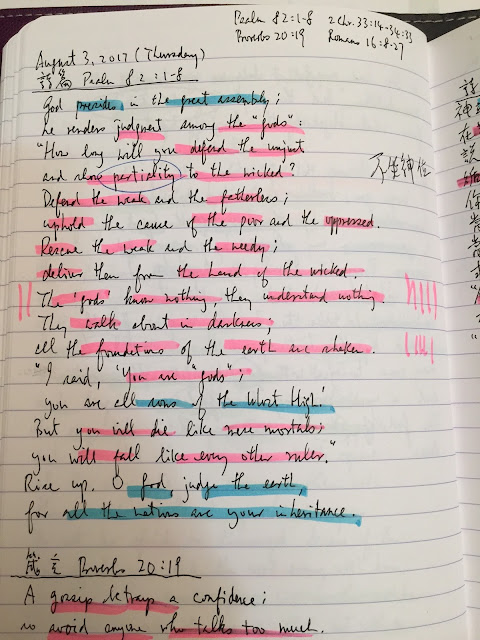 Psalm 82:1-8 2 Chr. 33:14-34:33
Proverbs 20:19 Romans 16:8-27
August 3, 2017 (Thursday)
詩篇 Psalm 82:1-8
God presides in the great assembly;
he renders judgment among the "gods":
"How long will you defend the unjust
and show partiality to the wicked?
Defend the weak and the fatherless;
uphold the cause of the poor and the oppressed.
Rescue the weak and the needy;
deliver them from the hand of the wicked.
The 'gods' know nothing, they understand nothing.
They walk about in darkness;
all the foundations of the earth are shaken.
"I said, 'You are "gods";
you are all sons of the Most High.'
But you will die like mere mortals;
you will fall like every other ruler."
Rise up, O God, judge the earth,
for all the nations are your inheritance.
箴言 Proverbs 20:19
A gossip betrays a confidence;
so avoid anyone who talks too much.